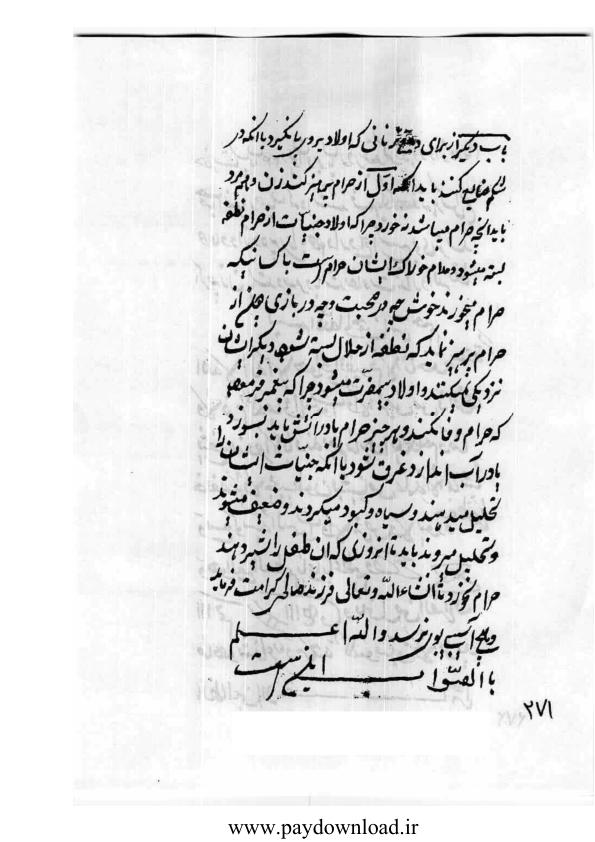 باب دیگر از برای زنانی که اولاد بروی پا نگیرد یا آنکه در
شکم ضایع کند باید اول از حرام پرهیز کند زن و هم مرد
باید آنچه حرام میباشد نه خورد چرا که اولاد جنیّات از حرام نطفه
بسته میشود و مدام خوراک ایشان حرام است باک نیکه
حرام میخورند خوش چه در صحبت و چه در بازی از
حرام پرهیز نماید که نطفه از حلال بسته شود دیگر ایشان
نزدیکی نمیکنند و اولاد بیمضرت میشود چرا که پیغمبر فرموده
که حرام وفا نکند و هر چیز حرام یا در آتش باید بسوزد
یا در آب اندازد غرق شود یا آنکه جنیّات ایشان را
تحلیل میدهند و سیاه و کبود میگردند و ضعیف میشوند
و تحلیل میروند باید تا آنروزی که آن طفل را شیر دهند
حرام نخورد تا انشاءالله وتعالی فرزند صالحی کرامت فرماید
و هیچ آسیب بوی نرسد والله اعلم
باالصّواب اینست
۲۷۱
www.paydownload.ir